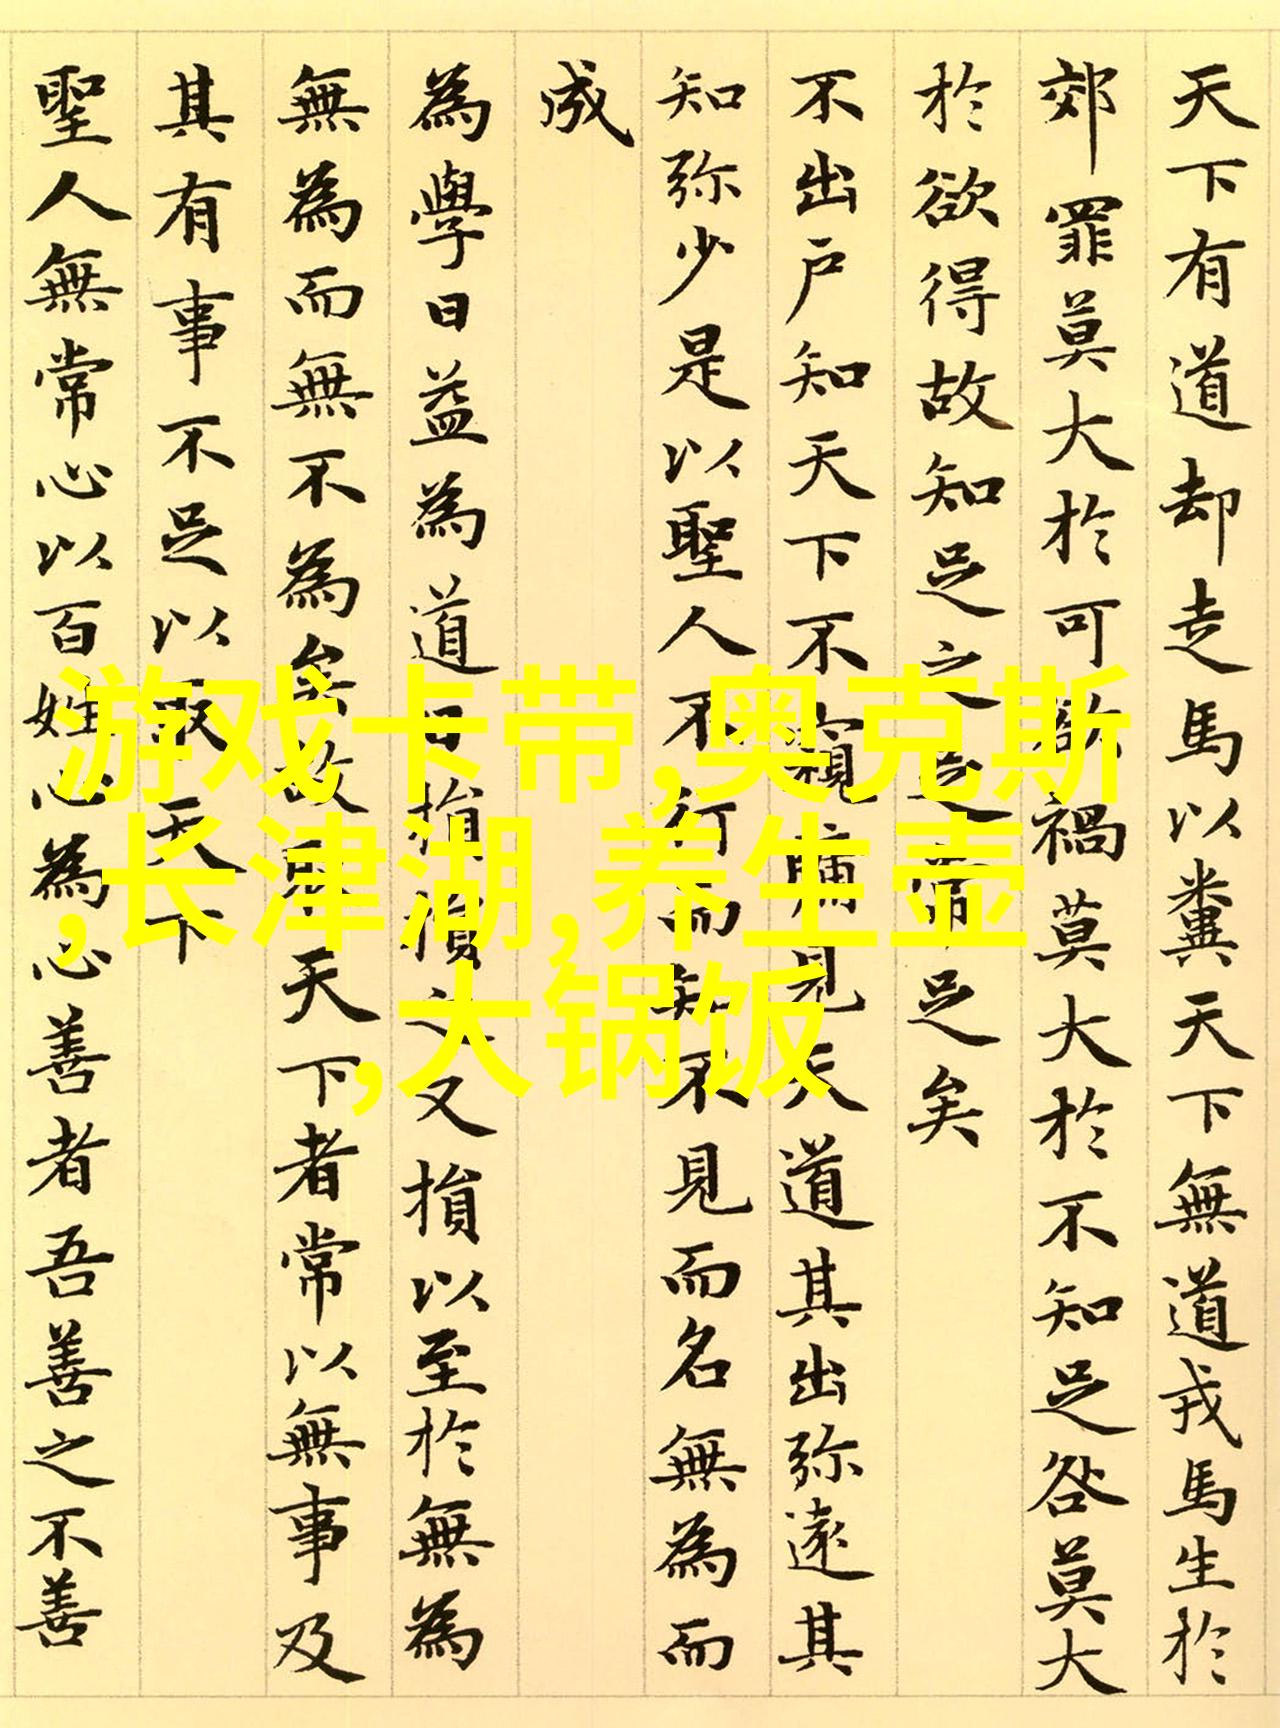 天下有道却走馬以糞天下無道戎馬生於
郊罪莫大於可欲禍莫大於不知足咎莫大
於欲得故知足之足常足矣
不出户知天下不窺牖見天道其出弥遠其
知弥少是以聖人不行而知不見而名無為而
成
為學日益為道日損損之又損以至於無為
無為而無不為矣故取天下者常以無事及
其有事不足以取天下
聖人無常心以百姓心為心善者吾善之不善
游戏卡带,奥克斯
,长津湖,养生壶
,大锅饭